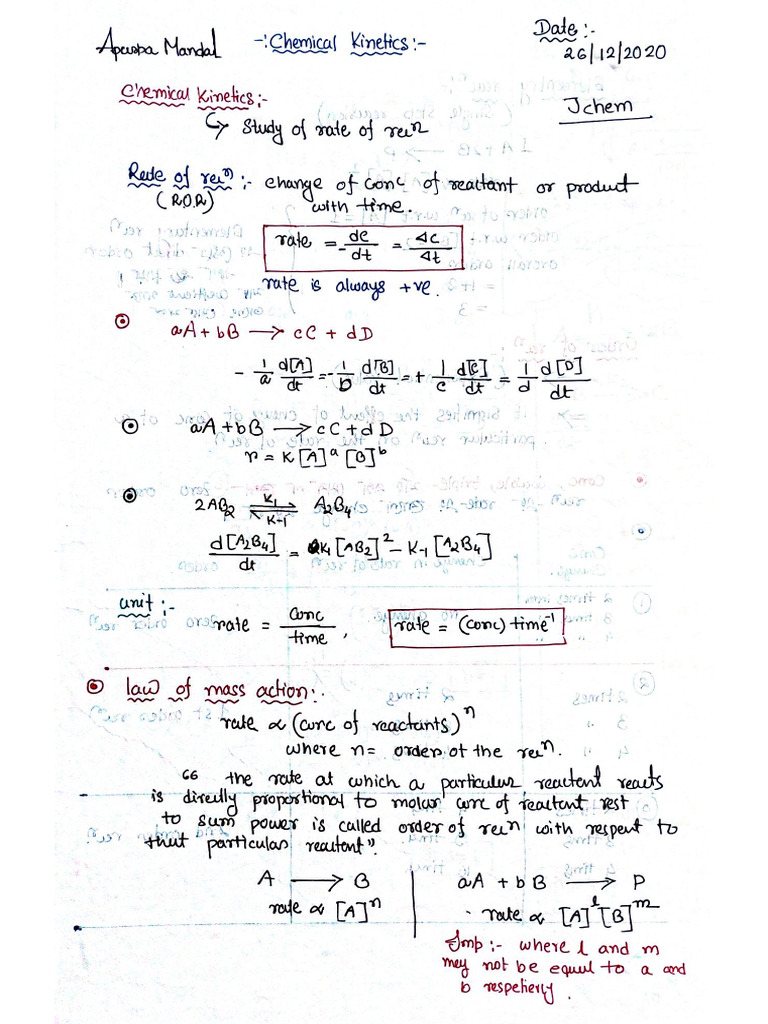 Apurba Mandal -: Chemical Kinetics :- Date :- 26/12/2020
Jchem
Chemical Kinetics :-
↳ Study of rate of reacⁿ
Rate of reacⁿ :- change of conc of reactant or product
(R.O.R) with time.
rate = - dc/dt = Δc/Δt
rate is always +ve.
⊙ aA + bB ⟶ cC + dD
- 1/a d[A]/dt = - 1/b d[B]/dt = + 1/c d[C]/dt = 1/d d[D]/dt
⊙ aA + bB ⟶ cC + dD
r = K [A]ᵃ [B]ᵇ
⊙ 2AB₂ ⇌ A₂B₄
K₁
K-1
d[A₂B₄]/dt = K₁ [AB₂]² - K-1 [A₂B₄]
unit :-
rate = conc/time , rate = (conc) time⁻¹
⊙ law of mass action :-
rate ∝ (conc of reactants)ⁿ
where n = order of the reacⁿ.
“ the rate at which a particular reactent reacts
is directly proportional to molar conc of reactant rest
to sum power is called order of reacⁿ with respect to
that particular reactant”.
A ⟶ B | aA + bB ⟶ P
rate ∝ [A]ⁿ | rate ∝ [A]ˡ [B]ᵐ
Imp :- where l and m
mey not be equal to a and
b respetierly.